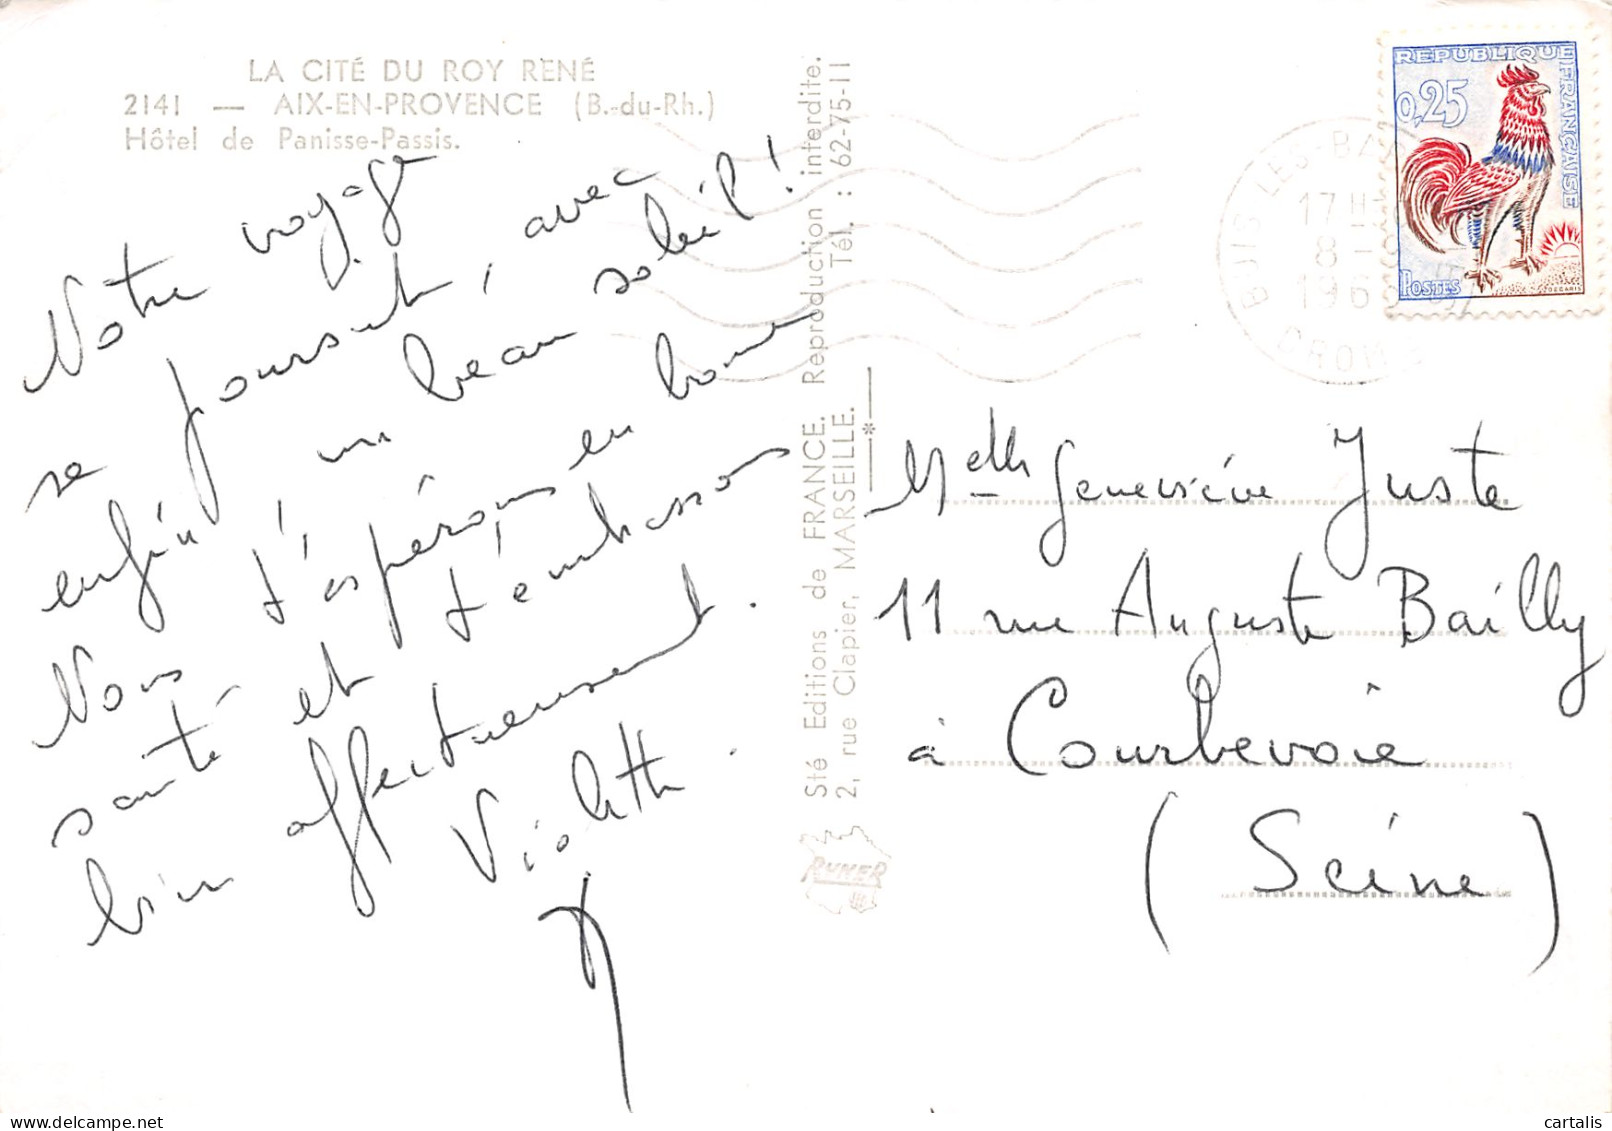 LA CITÉ DU ROY RENÉ
2141 — AIX-EN-PROVENCE (B.-du-Rh.)
Hôtel de Panisse-Passis.
Notre voyage
se poursuit, avec
enfin, un beau soleil !
Nous t'espérons en bonne
santé et t'embrassons
bien affectueusement.
Violette.
Sté Editions de FRANCE. Reproduction interdite.
2, rue Clapier, MARSEILLE. Tél. : 62-75-11
RYNER
REPUBLIQUE FRANÇAISE
0,25
POSTES
DECARIS
BUIS LES-BA
17 H
8
196
DROME
Melle Geneviève Juste
11 rue Auguste Bailly
à Courbevoie
(Seine)
cartalis
www.delcampe.net